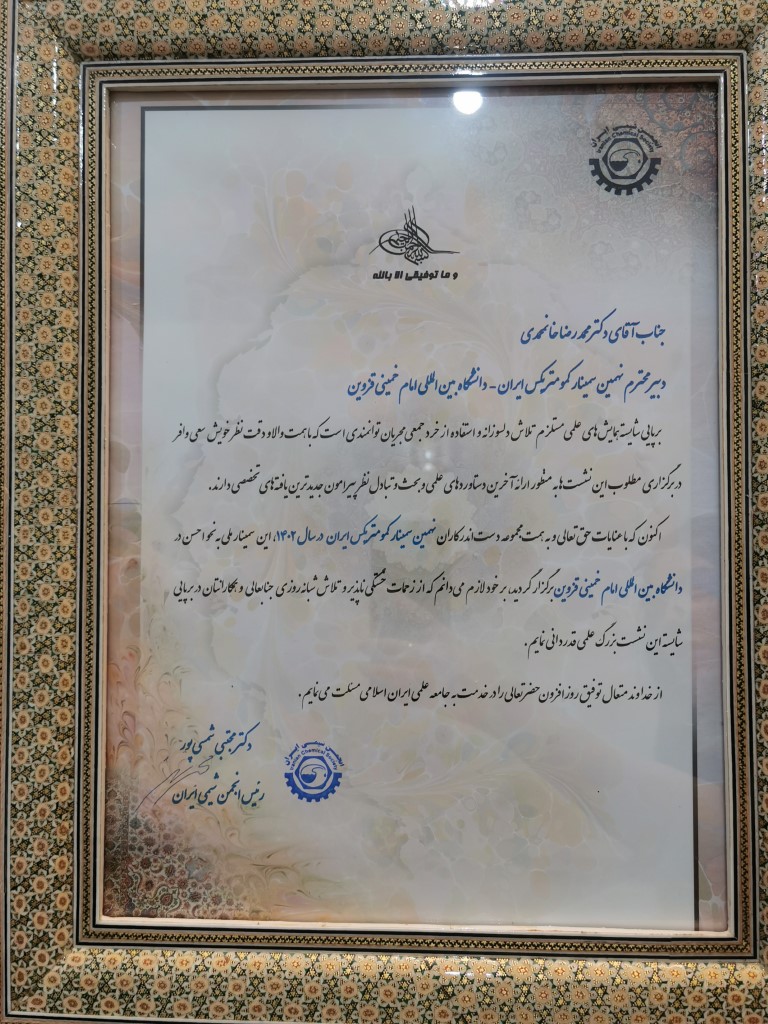 انجمن شیمی ایران
Iranian Chemical Society
و ما توفیقی الا بالله
جناب آقای دکتر محمدرضا خانمحمدی
دبیر محترم نهمین سمینار کمومتریکس ایران - دانشگاه بین المللی امام خمینی قزوین
برپایی شایسته همایش های علمی مستلزم تلاش دلسوزانه و استفاده از خرد جمعی مجریان توانمندی است که با همت والا و دقت نظر خویش سعی وافر
در برگزاری مطلوب این نشست ها به منظور ارائه آخرین دستاوردهای علمی و بحث و تبادل نظر پیرامون جدیدترین یافته های تخصصی دارند.
اکنون که با عنایات حق تعالی و به همت مجموعه دست اندرکاران نهمین سمینار کمومتریکس ایران در سال ۱۴۰۲، این سمینار ملی به نحو احسن در
دانشگاه بین المللی امام خمینی قزوین برگزار گردید، بر خود لازم می دانم که از زحمات خستگی ناپذیر و تلاش شبانه روزی جنابعالی و همکارانتان در برپایی
شایسته این نشست بزرگ علمی قدردانی نمایم.
از خداوند متعال توفیق روز افزون حضرتعالی را در خدمت به جامعه علمی ایران اسلامی مسئلت می نمایم.
دکتر مجتبی شمسی پور
رئیس انجمن شیمی ایران
انجمن شیمی ایران
Iranian Chemical Society